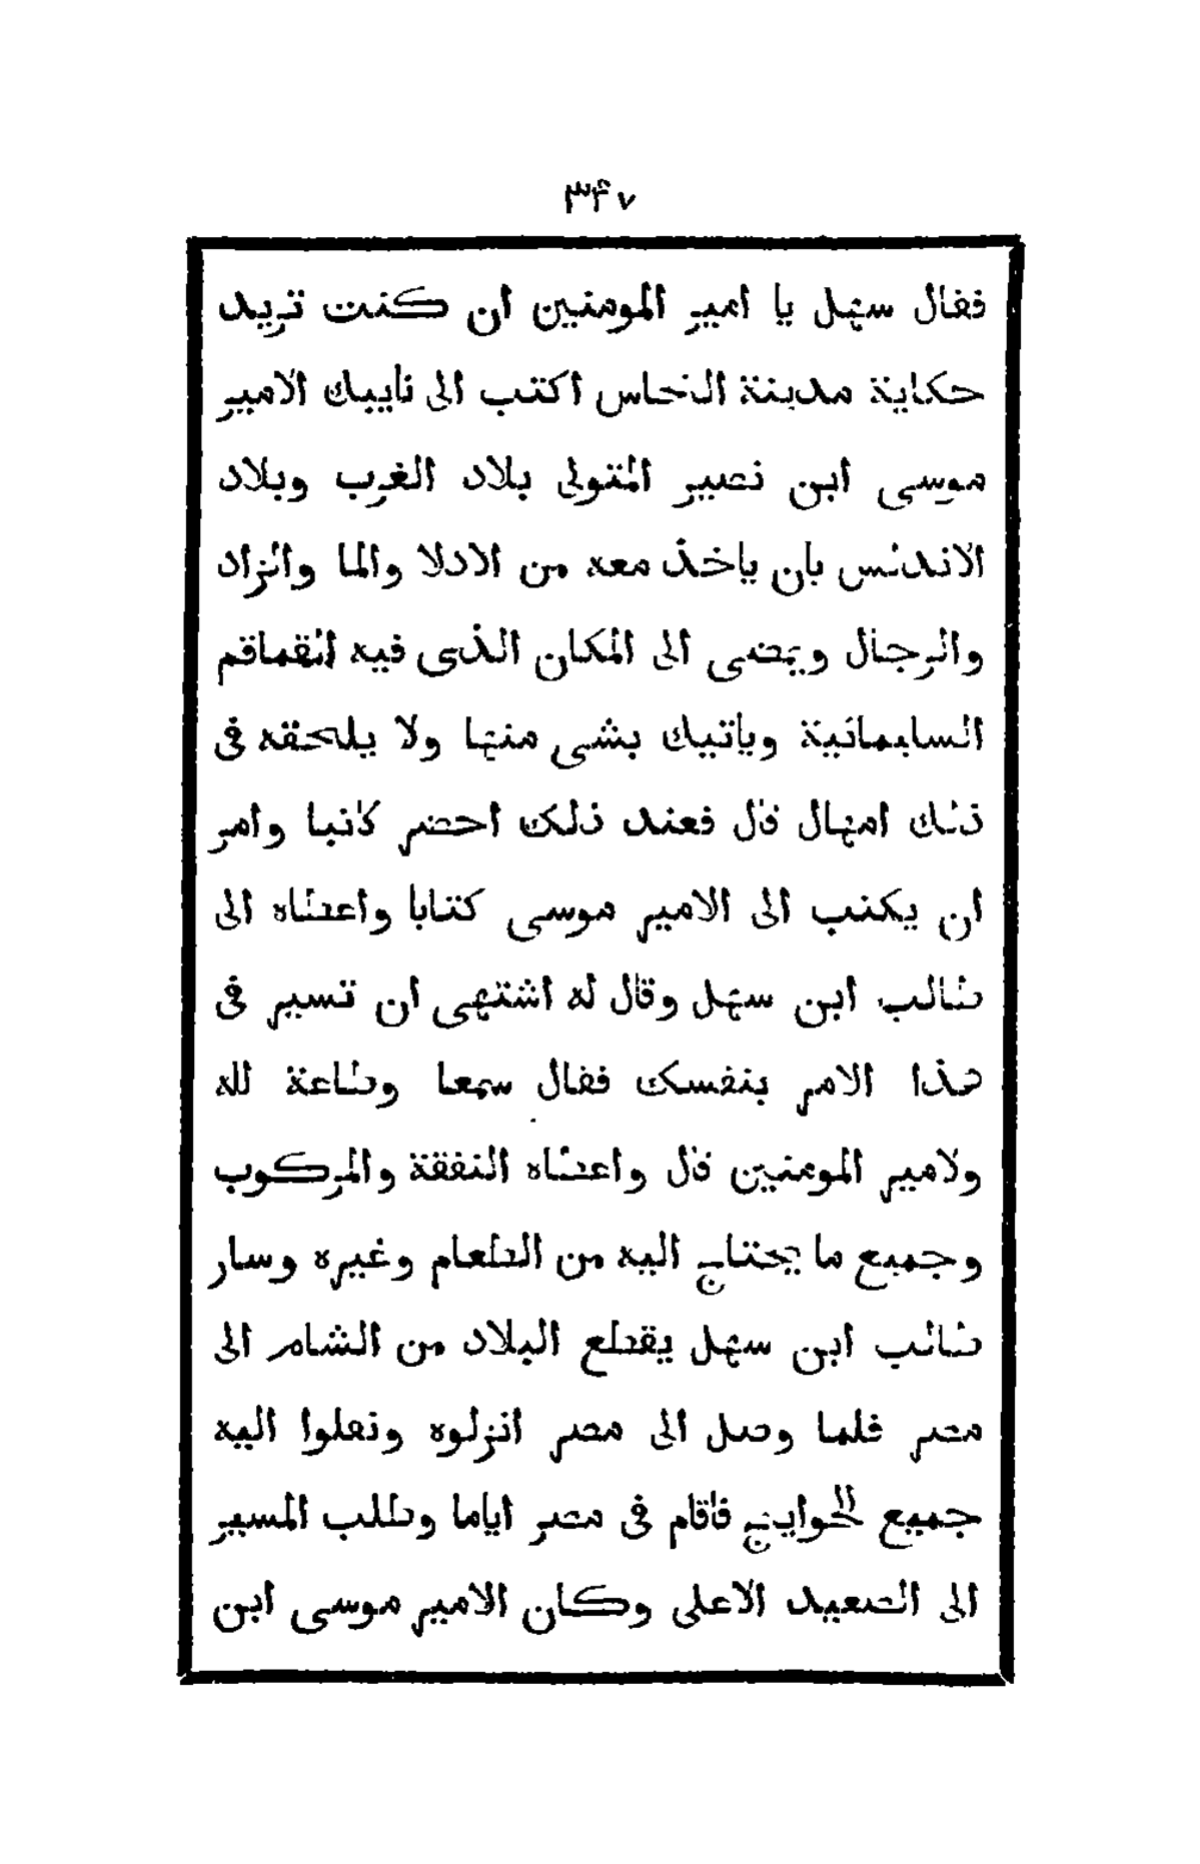 ٣٤٧
فقال سهل يا امير المومنين ان كنت تريد
حكاية مدينة النحاس اكتب الى نايبك الامير
موسى ابن نصير المتولى بلاد الغرب وبلاد
الاندلس بان ياخذ معه من الادلا والما والزاد
والرجال ويمضى الى المكان الذى فيه القماقم
السليمانية وياتيك بشى منها ولا يلحقه فى
ذلك امهال قال فعند ذلك احضر كاتبا وامر
ان يكتب الى الامير موسى كتابا واعطاه الى
طالب ابن سهل وقال له اشتهى ان تسير فى
هذا الامر بنفسك فقال سمعا وطاعة لله
ولامير المومنين قال واعطاه النفقة والمركوب
وجميع ما يحتاج اليه من الطعام وغيره وسار
طالب ابن سهل يقطع البلاد من الشام الى
مصر فلما وصل الى مصر انزلوه ونقلوا اليه
جميع الحوايج فاقام فى مصر اياما وطلب المسير
الى الصعيد الاعلى وكان الامير موسى ابن